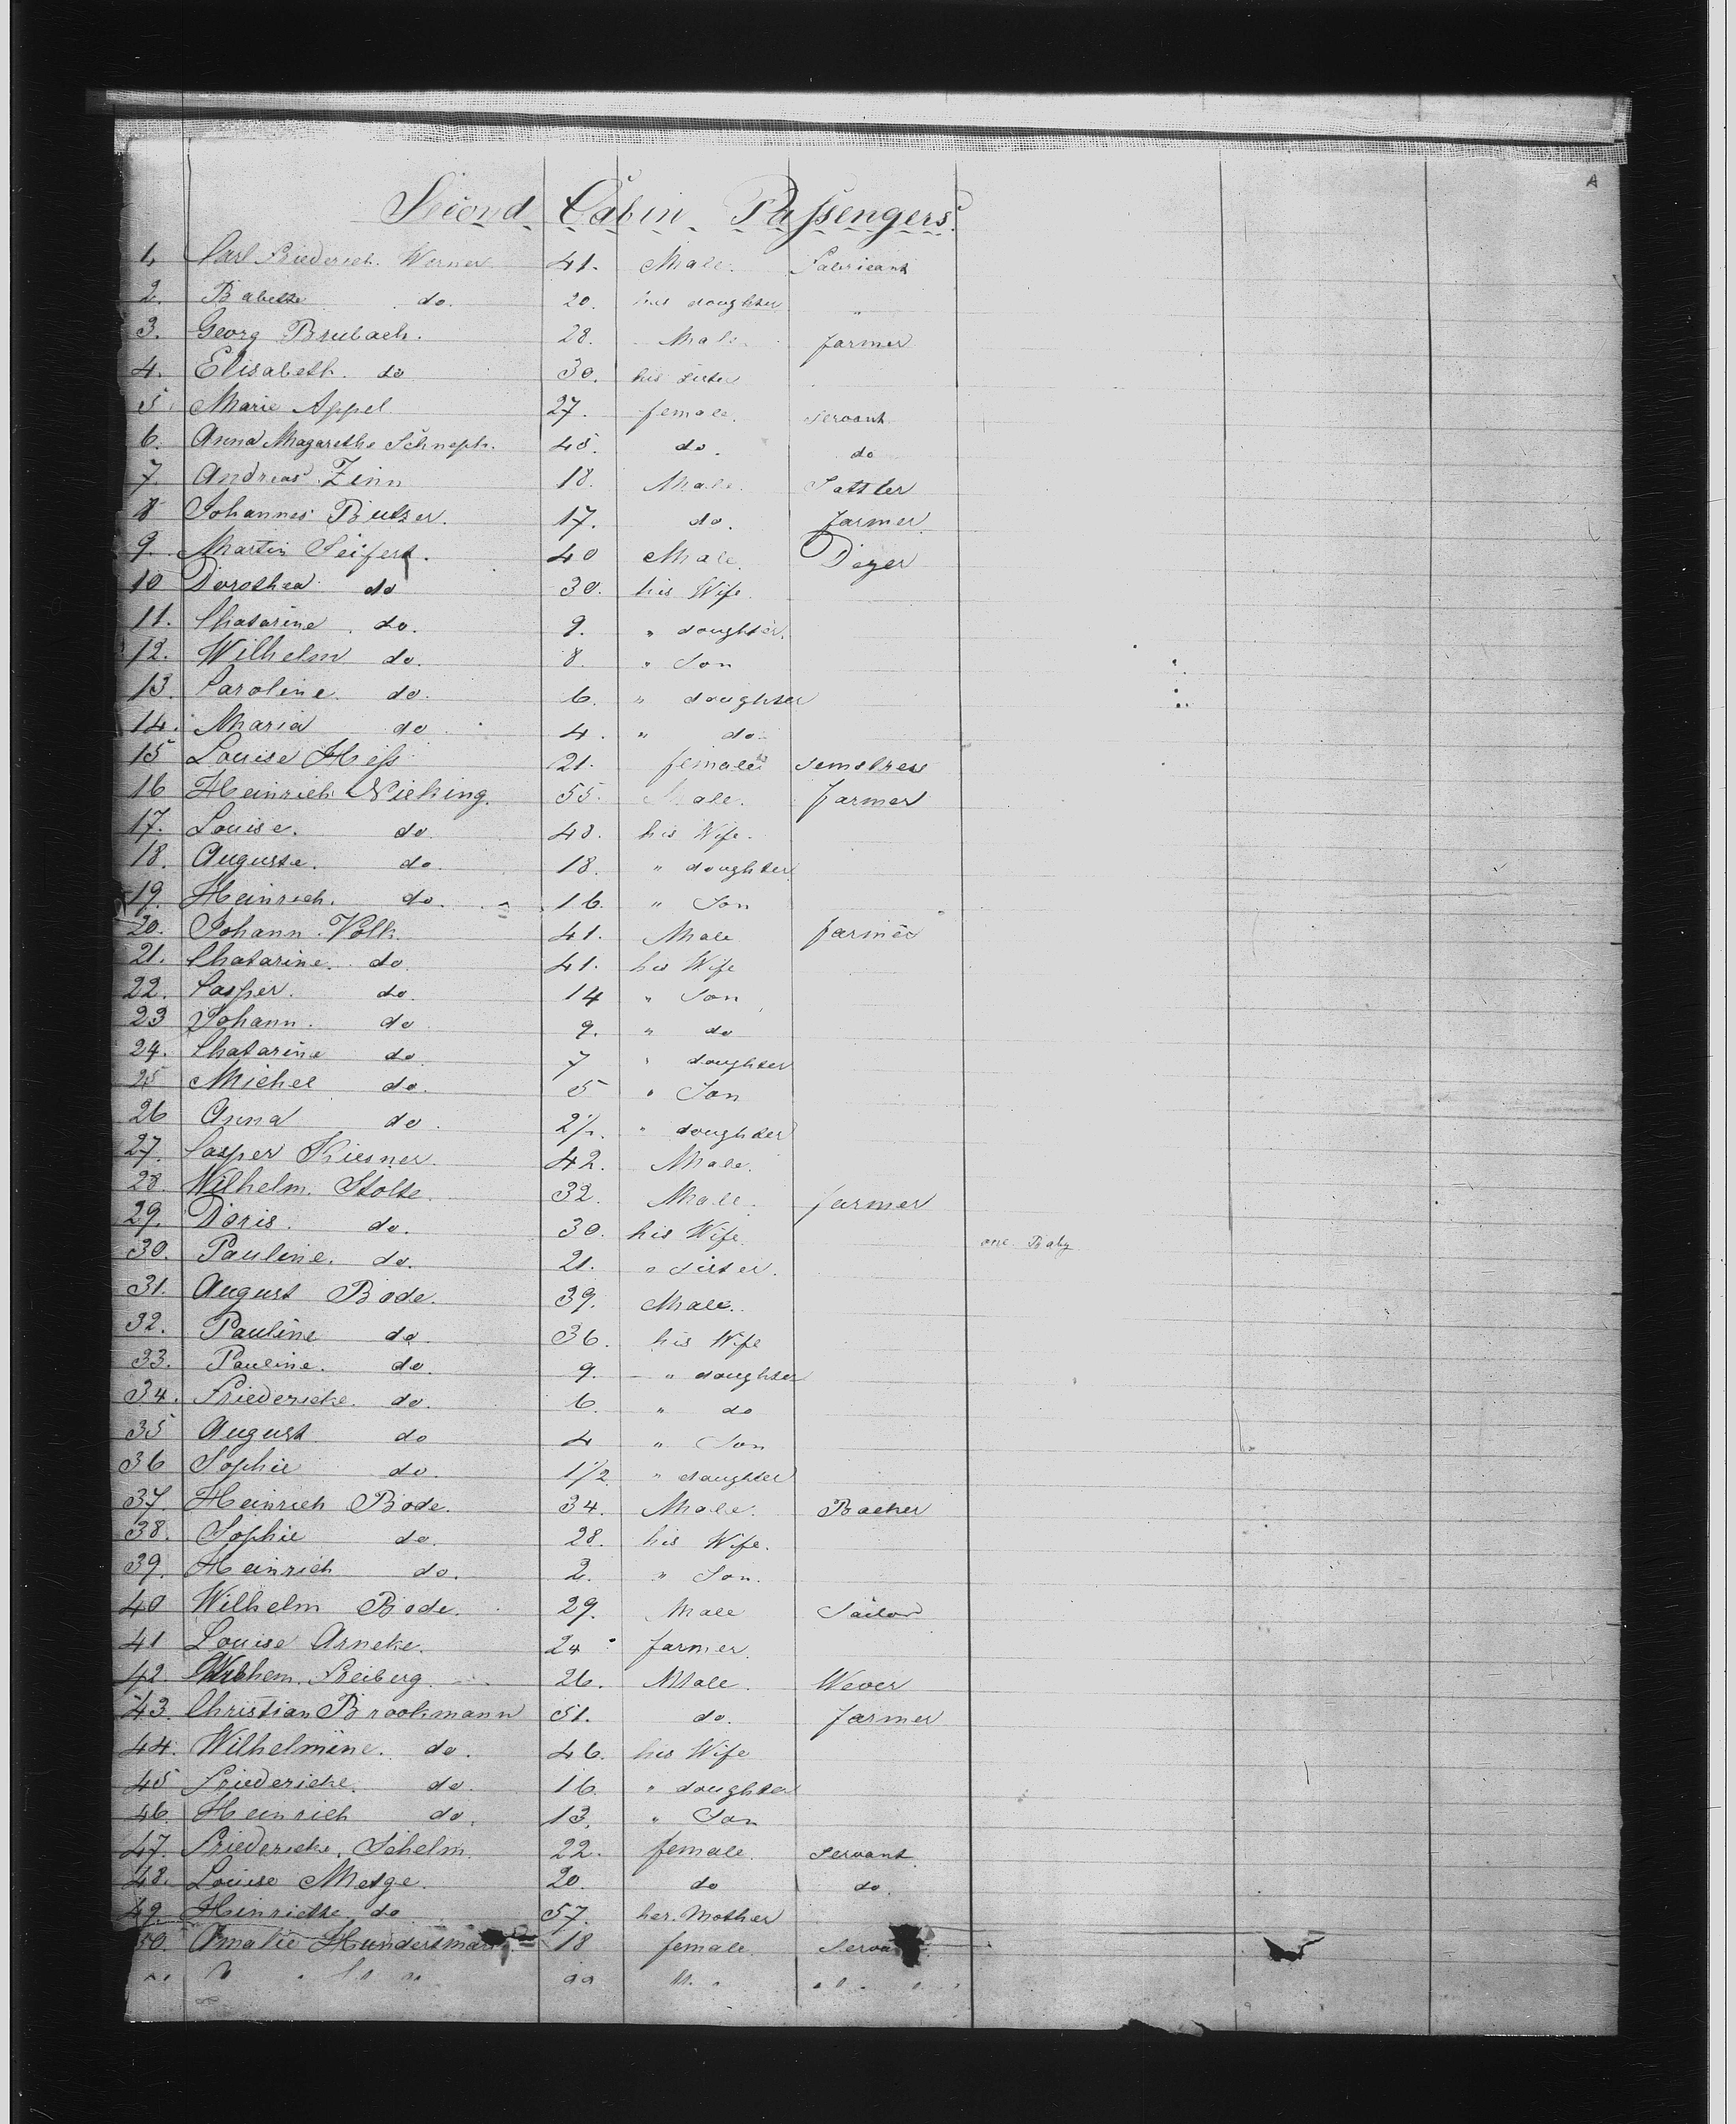 Second Cabin Passengers.
1. Carl Friederich Werner 41. Male. Fabricant
2. Babette do. 20. his doughter "
3. Georg Brubach. 28. Male farmer
4. Elisabeth. do 30. his sister
5. Marie Appel 27. female. Servant
6. Anna Magarethe Schneph. 45. do. do
7. Andreas Zinn 18. Male. Sattler
8 Johannes Butzer. 17. do. farmer
9. Martin Seifert. 40 Male. Dyer
10 Dorothea do 30. his Wife.
11. Chatarine do. 9. " doughter.
12. Wilhelm do. 8. " Son
13. Caroline. do. 6. " doughter
14. Maria do 4. " do.
15 Louise Hess 21. female semstress
16 Heinrich Wieking. 55. Male. farmer
17. Louise. do. 48. his Wife.
18. Auguste. do. 18. " doughter
19. Heinrich. do. 16. " Son
20. Johann Volk 41. Male farmer
21. Chatarine. do. 41. his Wife
22. Casper. do. 14 " Son
23 Johann. do 9. " do
24. Chatarine do 7 " doughter
25 Michel do. 5 " Son
26 Anna do. 2½. " doughter
27. Casper Kiesner. 42. Male.
28. Wilhelm. Stolte. 32. Male. farmer
29. Doris. do. 30. his Wife. one Baby
30. Pauline. do. 21. " Sister.
31. August Bode. 39. Male.
32. Pauline do. 36. his Wife
33. Pauline. do. 9. " doughter
34. Friedericke. do. 6. " do
35 August do 4 " Son
36 Sophie do. 1½ " doughter
37. Heinrich Bode. 34. Male. Backer
38. Sophie do. 28. his Wife.
39. Heinrich do. 2. " Son.
40 Wilhelm Bode. 29. Male Tailor
41 Louise Arneke. 24 farmer.
42. Freiberg. 26. Male. Wever
43. Christian Brookmann 51. do. farmer
44. Wilhelmine. do. 46. his Wife
45 Friedericke. do. 16. " doughter
46. Heinrich do. 13. " Son
47. Friedericke. Schelm. 22. female. Servant.
48. Louise Metge. 20. do do.
49. Heinriette do 57. her. Mother
50. Amalie 18 female.